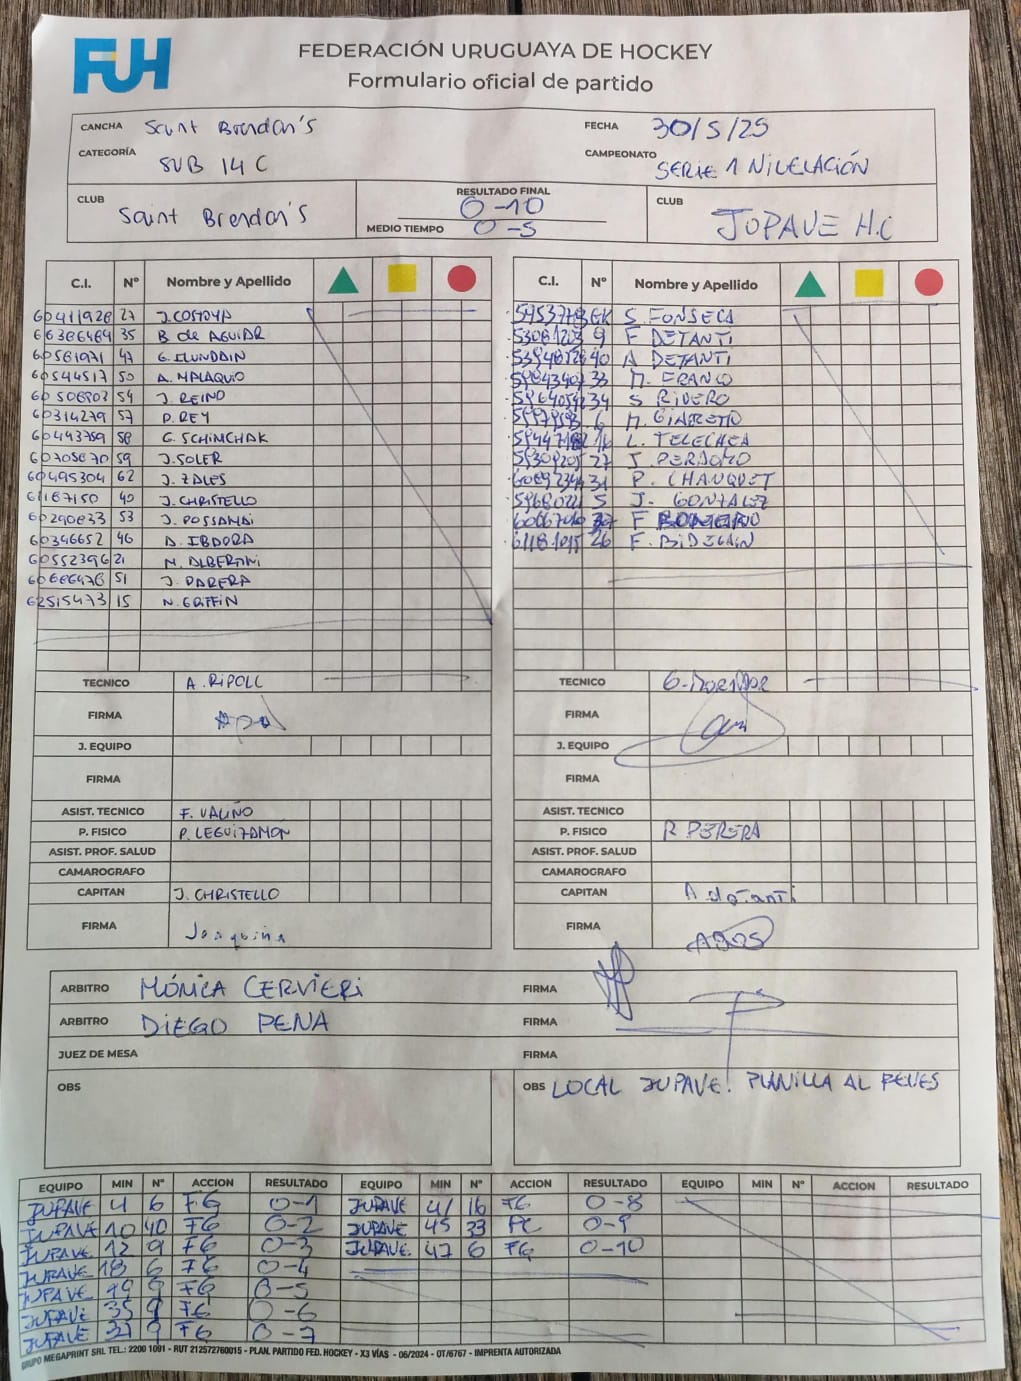 FUH
FEDERACIÓN URUGUAYA DE HOCKEY
Formulario oficial de partido
CANCHA Saint Brendan's FECHA 30/5/25
CATEGORÍA SUB 14 C CAMPEONATO SERIE 1 NIVELACIÓN
CLUB Saint Brendan's RESULTADO FINAL 0-10 CLUB JUPAVE H.C
MEDIO TIEMPO 0-5
C.I. Nº Nombre y Apellido C.I. Nº Nombre y Apellido
60411928 27 J. COSTOYA GK S. FONSECA
66386464 35 B de AGUIAR 9 F DETANTI
60581971 47 G. ILUNDAIN 40 A DETANTI
60544517 50 A. MALAQUIO 33 M. FRANCO
54 J. REINO 34 S RIVERO
60314279 57 P. REY 6
60443759 58 G. SCHIMCHAK 16 L. TELECHEA
60705670 59 J. SOLER 27 J. PERDOMO
60495304 62 J. ZALES 31 P. CHAUQUET
61187150 49 J. CHRISTELLO 5 J. GONZALEZ
60290833 53 J. POSSAMAI F
60346652 46 A. IBDORA 26 F. BIDEGAIN
60552396 21 M. ALBERTANI
51 J. PARERA
62515473 15 N. GRIFFIN
TECNICO A. RIPOLL TECNICO
FIRMA FIRMA
J. EQUIPO J. EQUIPO
FIRMA FIRMA
ASIST. TECNICO F. VALIÑO ASIST. TECNICO
P. FISICO P. LEGUIZAMON P. FISICO R PERERA
ASIST. PROF. SALUD ASIST. PROF. SALUD
CAMAROGRAFO CAMAROGRAFO
CAPITAN J. CHRISTELLO CAPITAN A detanti
FIRMA Joaquina FIRMA AGOS
ARBITRO MÓNICA CERVIERI FIRMA
ARBITRO DIEGO PENA FIRMA
JUEZ DE MESA FIRMA
OBS OBS LOCAL JUPAVE! PLANILLA AL REVES
EQUIPO MIN Nº ACCION RESULTADO EQUIPO MIN Nº ACCION RESULTADO EQUIPO MIN Nº ACCION RESULTADO
JUPAVE 4 6 FG 0-1 JUPAVE 41 16 FG 0-8
JUPAVE 10 40 FG 0-2 JUPAVE 45 33 PC 0-9
JUPAVE 12 9 FG 0-3 JUPAVE 47 6 FG 0-10
JUPAVE 18 6 FG 0-4
JUPAVE 19 9 FG 0-5
JUPAVE 35 9 FG 0-6
JUPAVE 9 FG 0-7
GRUPO MEGAPRINT SRL TEL.: 2200 1091 - RUT 212572760015 - PLAN. PARTIDO FED. HOCKEY - X3 VÍAS - 06/2024 - OT/6767 - IMPRENTA AUTORIZADA